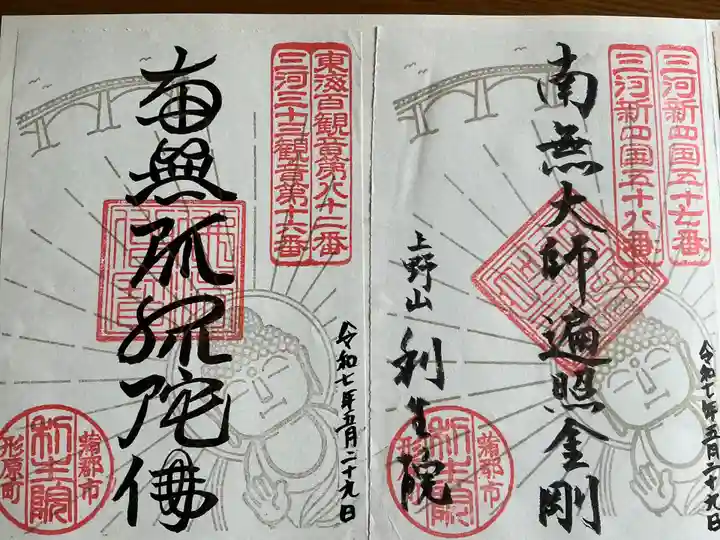 三河新四国五十七番
三河新四国五十八番
南無大師遍照金剛
上野山
利生院
蒲郡市
形原町
利生院
令和七年五月二十九日
東海百観音第八十二番
三河三十三観音第十六番
南無阿弥陀佛
蒲郡市
形原町
利生院
令和七年五月二十九日